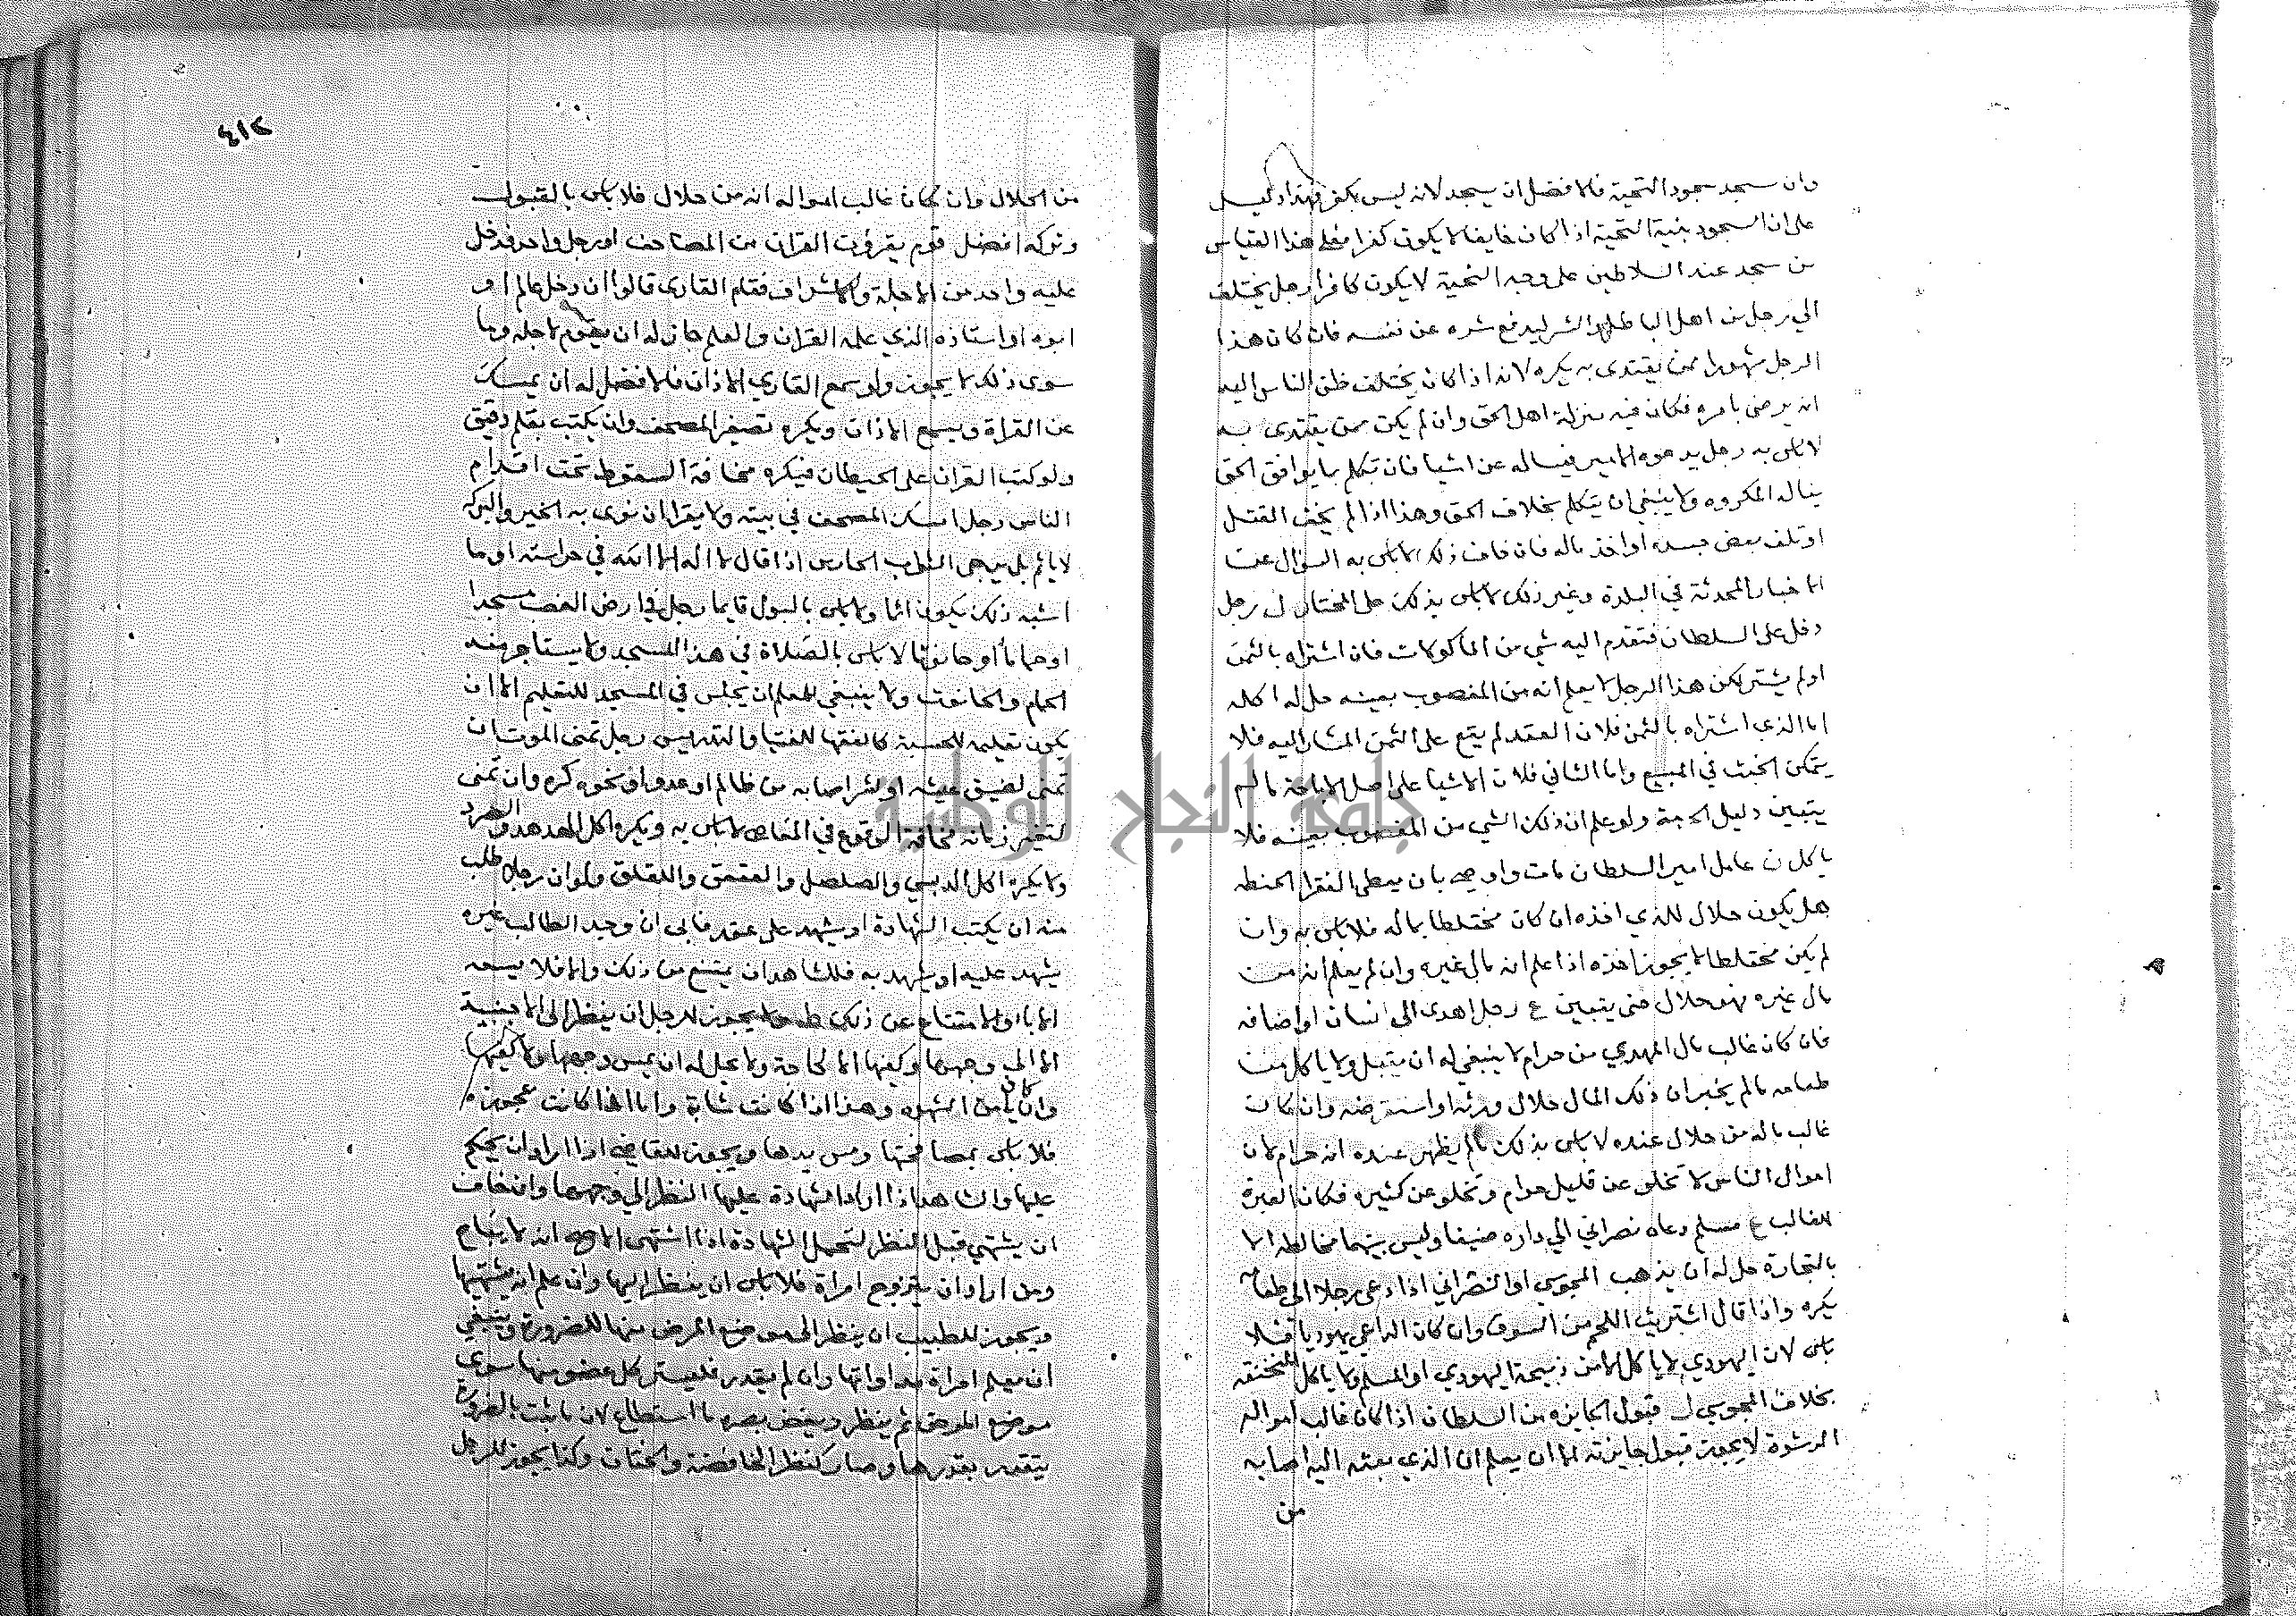 وان سجد سجود التحية فالافضل ان يسجد لانه ليس بكفر فهذا دليل
على ان السجود بنية التحية اذا كان خايفا لا يكون كفرا فعلى هذا القياس
من سجد عند السلاطين على وجه التحية لا يكون كافرا رجل يختلف
الي رجل من اهل الباطل والشر ليدفع شره عن نفسه فان كان هذا
الرجل مشهورا ممن يقتدى به يكره لانه اذا كان يختلف ظن الناس اليه
انه يرضى بامره فكان فيه منزلة اهل الحق وان لم يكن ممن يقتدى به
لا باس به رجل يدعوه الامير فيساله عن اشيا فان تكلم بما يوافق الحق
يناله المكروه ولا ينبغي ان يتكلم بخلاف الحق وهذا اذا لم يخف القتل
او تلف بعض جسده او اخذ ماله فان خاف ذلك لا باس به السؤال عن
الاخبار المحدثة في البلدة وغير ذلك لا باس بذلك على المختار ل رجل
دخل على السلطان فتقدم اليه شي من الماكولات فان اشتراه بالثمن
اولم يشتر لكن هذا الرجل لا يعلم انه من المغصوب بعينه حل له اكله
اما الذي اشتراه بالثمن فلان العقد لم يقع على الثمن المشار اليه فلا
يتمكن الخبث في المبيع واما الثاني فلان الاشيا على اصل الاباحة ما لم
يتبين دليل الحرمة ولو علم ان ذلك الشي من المغصوب بعينه فلا
ياكل ن عامل امير السلطان مات واوصى بان يعطى الفقرا الحنطة
هل يكون حلال للذي اخذه ان كان مختلطا بماله فلا باس به وان
لم يكن مختلطا لا يجوز اخذه اذا علم انه مال غيره وان لم يعلم انه من
مال غيره فهو حلال حتى يتبين ع رجل اهدى الى انسان او اضافه
فان كان غالب مال المهدي من حرام لا ينبغي له ان يقبل ولا ياكل من
طعامه ما لم يخبر ان ذلك المال حلال ورثه او استقرضه وان كان
غالب ماله من حلال عنده لا باس بذلك ما لم يظهر عنده انه حرام لان
اموال الناس لا تخلو عن قليل حرام وتخلو عن كثيره فكان العبرة
للغالب ع مسلم دعاه نصراني الي داره ضيفا وليس بينهما مخالطة الا
بالتجارة حل له ان يذهب المجوسي او النصراني اذا دعى رجلا الى طعامه
يكره واذا قال اشتريت اللحم من السوق وان كان الداعي يهوديا فلا
باس لان اليهودي لا ياكل الا من ذبيحة اليهودي او المسلم ولا ياكل المنخنقة
بخلاف المجوسي ل قبول الجايزه من السلطان اذا كان غالب امواله
الرشوة لا يجوز قبول جايزته الا ان يعلم ان الذي بعثه اليه اصابه
من
٤١٢
من الحلال وان كان غالب امواله انه من حلال فلا باس بالقبول
وتركه افضل قوم يقرؤن القران من المصاحف او رجل واحد فدخل
عليه واحد من الاجلة والاشراف فقام القارى قالوا ان دخل عالم او
ابوه او استاذه الذي علمه القران والعلم جاز له ان يقوم لاجله وما
سوى ذلك لا يجوز ولو سمع القاري الاذان فالافضل له ان يمسك
عن القراة ويسمع الاذان ويكره تصغير المصحف وان يكتب بقلم دقيق
ولو كتب القران على الحيطان فيكره مخافة السقوط تحت اقدام
الناس رجل امسك المصحف في بيته ولا يقرا ان نوى به الخير والبركه
لا ياثم بل يرجى الثواب الحارس اذا قال لا اله الا الله في حراسته او ما
اشبه ذلك يكون اثما ولا باس بالبول قايما رجل في ارض الغصب مسجدا
او حماما او حانوتا لا باس بالصلاة في هذا المسجد ولا يستاجر منه
الحمام والحانوت ولا ينبغي للمعلم ان يجلس في المسجد للتعليم الا ان
يكون تعليمه للحسبة كالفقها للفتيا والتدريس رجل تمنى الموت ان
تمنى لضيق عيشه او لشر اصابه من ظالم او عدو او نحوه كره وان تمنى
لتغير زمانه مخافة الوقوع في المعاصي لا باس به ويكره اكل الهدهد والصرد
ولا يكره اكل الدبسي والصلصل والعقعق واللقلق ولو ان رجلا طلب
منه ان يكتب الشهادة او يشهد على عقد فابى ان وجد الطالب غيره
يشهد عليه او يشهد به فللشاهد ان يمتنع من ذلك والا فلا يسعه
الاباو الامتناع عن ذلك ط ولا يجوز للرجل ان ينظر الى الاجنبية
الا الي وجهها وكفيها الا لحاجة ولا يحل له ان يمس وجهها ولا كفيها
وان كان يامن الشهوه وهذا اذا كانت شابة واما اذا كانت عجوزه
فلا باس بمصافحتها ومس يدها ويجوز للقاضي اذا اراد ان يحكم
عليها والشاهد اذا اراد الشهادة عليها النظر الي وجهها وان خاف
ان يشتهي قبل النظر لتحمل الشهادة اذا اشتهى الاصح انه لا يباح
ومن اراد ان يتزوج امراة فلا باس ان ينظر اليها وان علم انه يشتهيها
ويجوز للطبيب ان ينظر الى موضع المرض منها للضرورة وينبغي
ان يعلم امراة مداواتها وان لم يقدر فليستر كل عضو منها سوى
موضع المرض ثم ينظر ويغض بصره ما استطاع لان ما ثبت بالضرورة
يتقدر بقدرها وصار كنظر الخافضة والختان وكذا يجوز للرجل
جامعة النجاح الوطنية